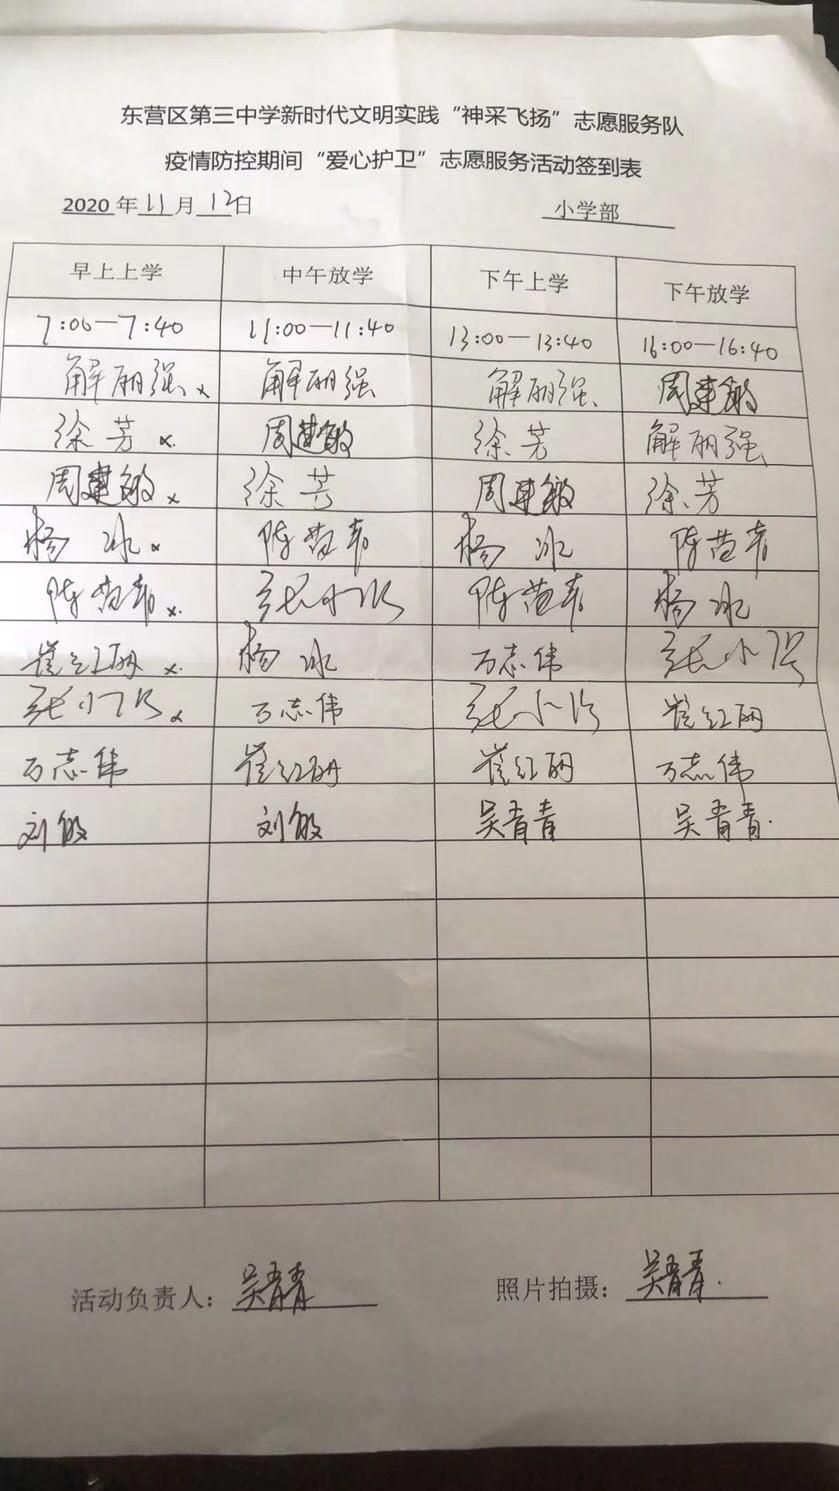 东营区第三中学新时代文明实践“神采飞扬”志愿服务队
疫情防控期间“爱心护卫”志愿服务活动签到表
2020年11月12日 小学部
早上上学 中午放学 下午上学 下午放学
7:00—7:40 11:00—11:40 13:00—13:40 16:00—16:40
解丽强、x 解丽强 解丽强、 周建敏
徐芳 x. 周建敏 徐芳 解丽强
周建敏 x 徐芳 周建敏 徐芳
杨冰 x 陈茜韦 杨冰 陈茜韦
陈茜韦 x. 张小 陈茜韦 杨冰
崔红丽 x. 杨冰 万志伟 张小
张小 x 万志伟 张小 崔红丽
万志伟 崔红丽 崔红丽 万志伟
刘敏 刘敏 吴青青 吴青青.
活动负责人：吴青青 照片拍摄：吴青青.